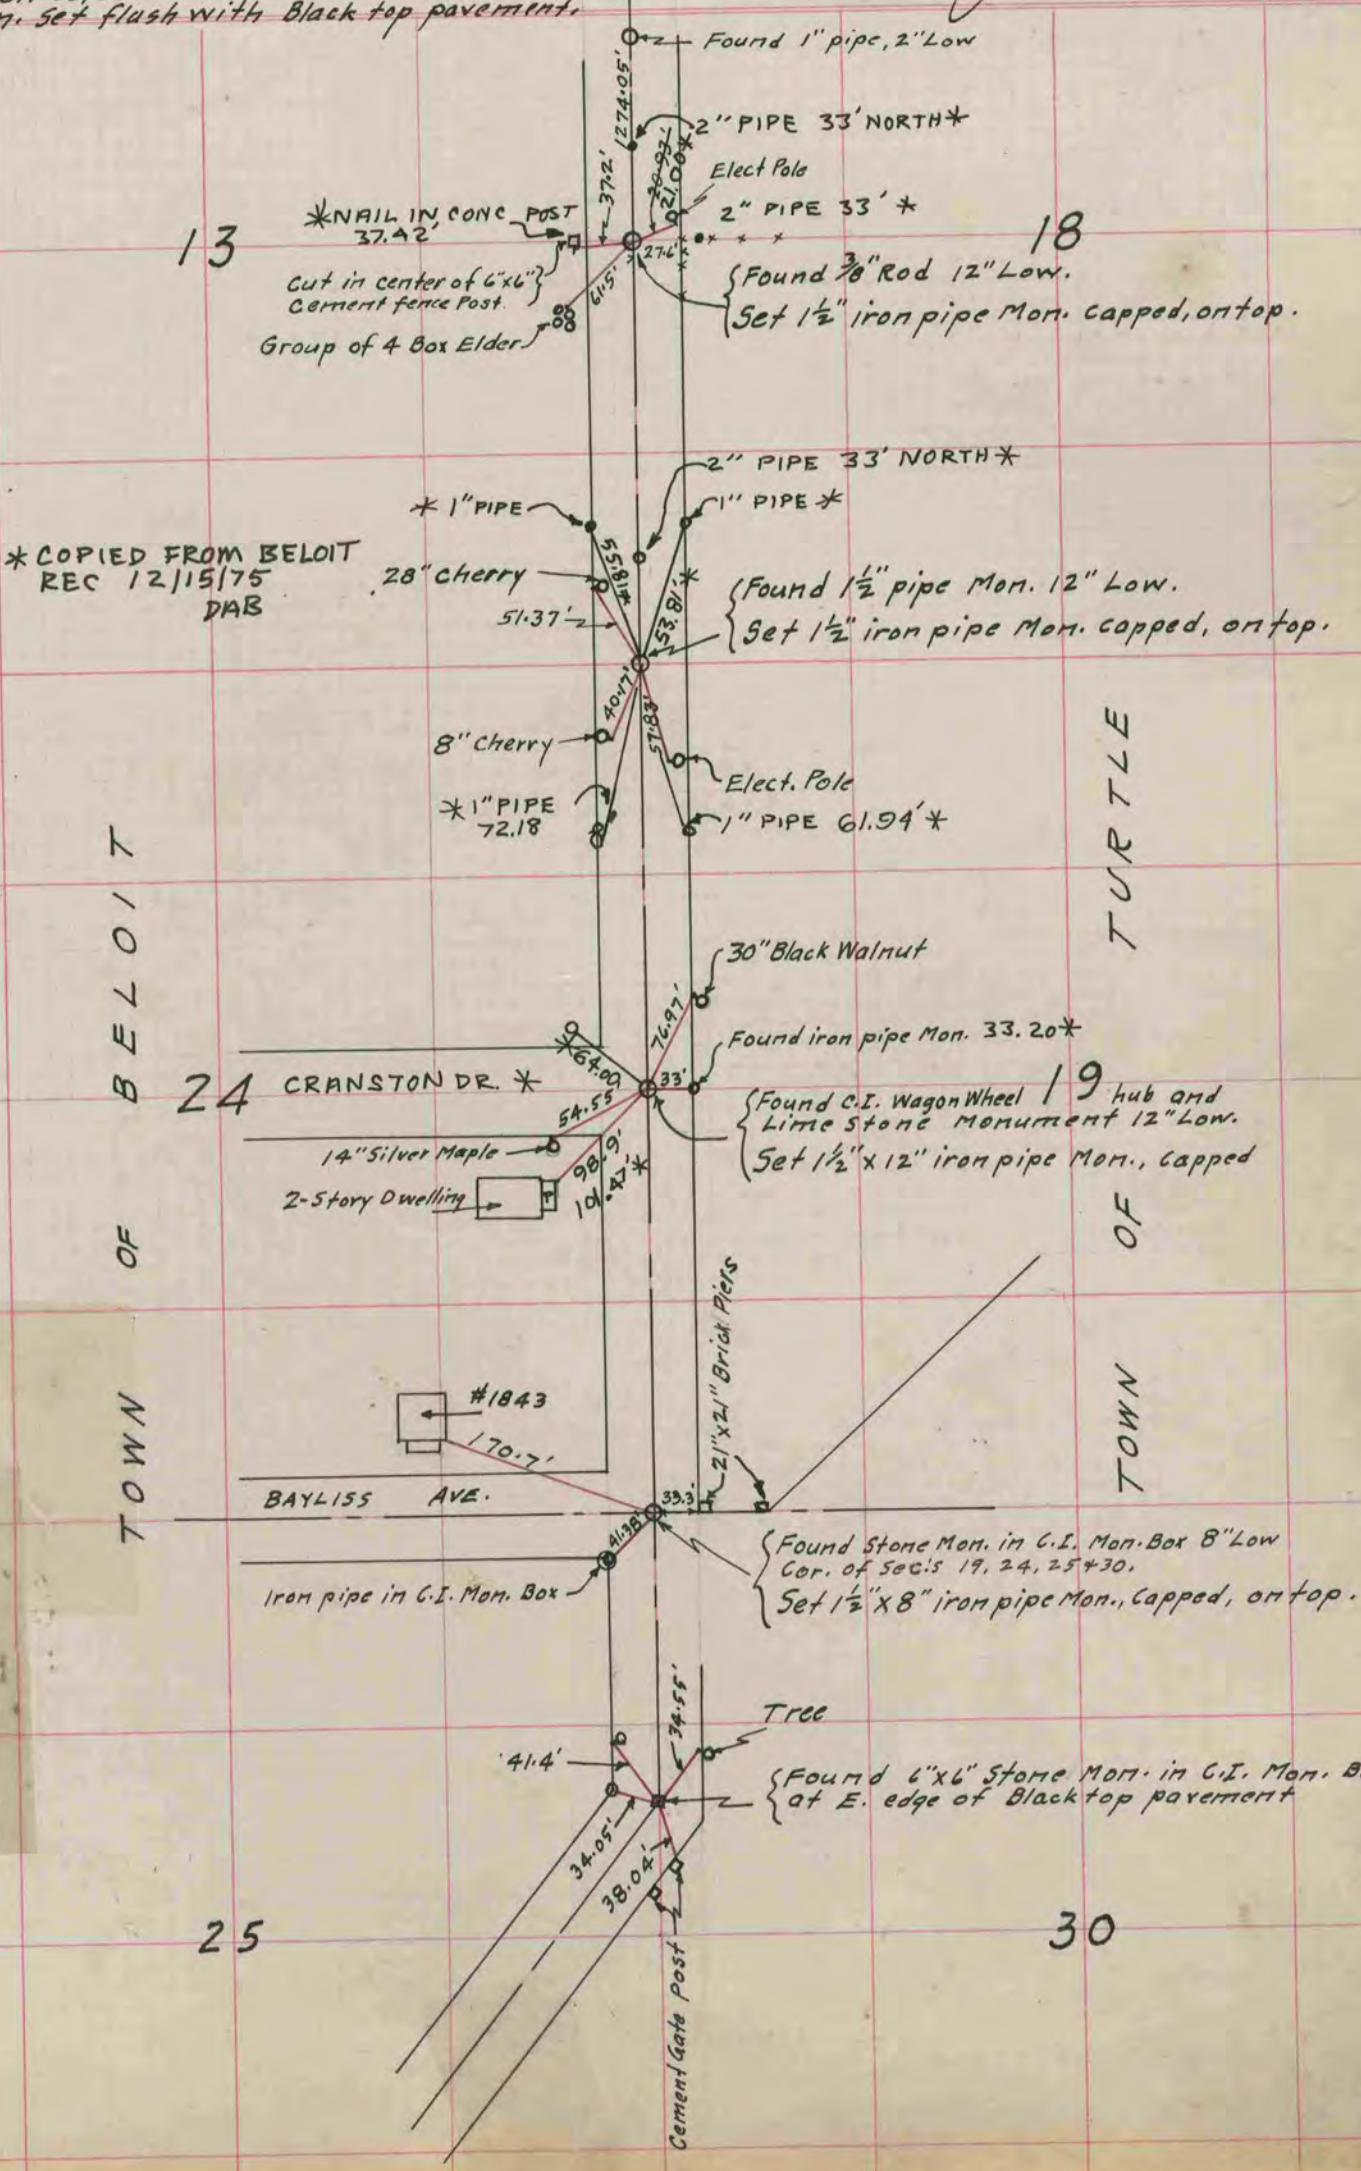 n. Set flush with Black top pavement.
Found 1" pipe, 2" Low
1274.05'
2" PIPE 33' NORTH *
37.2'
21.00 *
Elect Pole
* NAIL IN CONC POST
37.42'
2" PIPE 33' *
13
18
27.6'
Cut in center of 6"x6"
Cement fence Post.
61.5'
Found 3/8" Rod 12" Low.
Set 1 1/2" iron pipe Mon. capped, on top.
Group of 4 Box Elder
2" PIPE 33' NORTH *
* 1" PIPE
1" PIPE *
* COPIED FROM BELOIT
REC 12/15/75
DAB
55.81 *
53.81' *
28" Cherry
51.37'
Found 1 1/2" pipe Mon. 12" Low.
Set 1 1/2" iron pipe Mon. capped, on top.
40.17'
57.83'
8" Cherry
Elect. Pole
* 1" PIPE
72.18
1" PIPE 61.94' *
TOWN OF BELOIT
TOWN OF TURTLE
30" Black Walnut
76.97'
Found iron pipe Mon. 33.20 *
* 64.00
24
CRANSTON DR. *
33'
19
54.55
Found C.I. Wagon Wheel hub and
Lime Stone Monument 12" Low.
Set 1 1/2" x 12" iron pipe Mon., Capped
14" Silver Maple
98.9'
101.47' *
2-Story Dwelling
21"x21" Brick Piers
#1843
170.7'
BAYLISS AVE.
33.3'
41.38'
Found Stone Mon. in C.I. Mon. Box 8" Low
Cor. of Sec's 19, 24, 25 & 30.
Set 1 1/2" x 8" iron pipe Mon., Capped, on top.
Iron pipe in C.I. Mon. Box
34.55'
Tree
41.4'
Found 6"x6" Stone Mon. in C.I. Mon. B
at E. edge of Black top pavement
34.05'
38.04'
25
30
Cement Gate Post